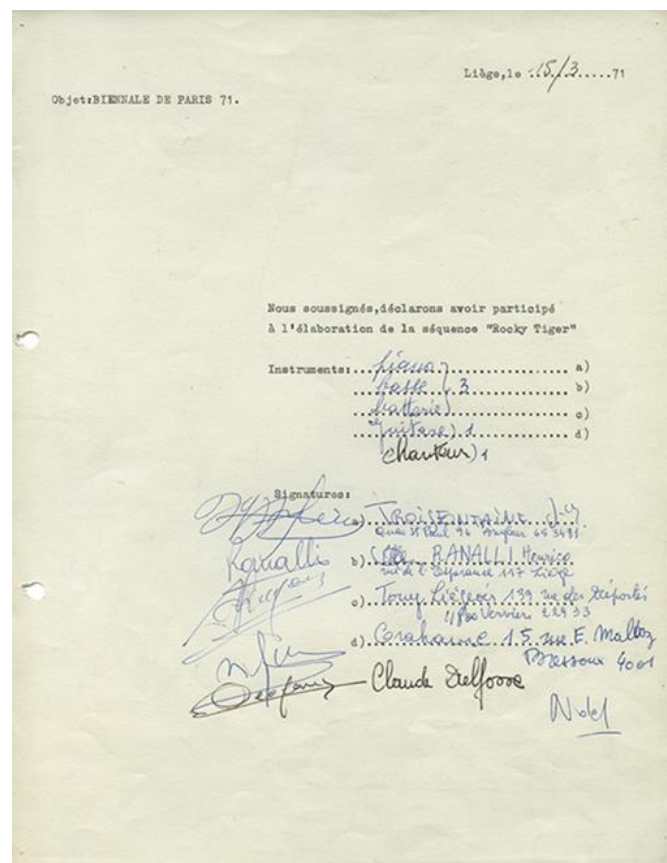 Liège,le .15/3.....71
Objet:BIENNALE DE PARIS 71.
Nous soussignés,déclarons avoir participé
à l'élaboration de la séquence "Rocky Tiger"
Instruments:...piano................. a)
...basse } 3................. b)
...batterie................. c)
...guitare) 1................. d)
chanteur) 1
Signatures:
a) TROISFONTAINE
Quai St Paul 96 Angleur 653481
Ranalli b) RANALLI Henrico
rue de l'Espérance 117 Liège
c) Tony Liégeois 139 rue des Déportés
Verviers 22933
d) 15 rue E. Malvoz
Bressoux 4001
Claude Delfosse